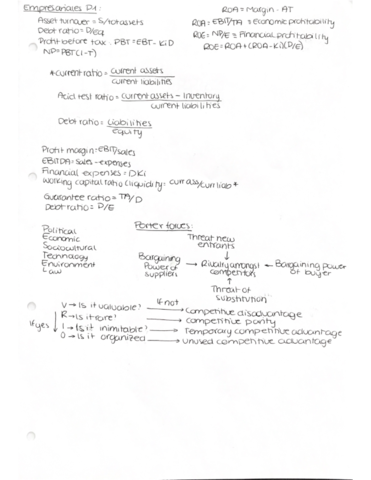 Empresariales P1:
Asset turnover = S/total assets
Debt ratio = D/eq
Profit before tax: PBT = EBT - KiD
NP = PBT(1-T)
ROA = Margin · AT
ROA = EBIT/TA = Economic profitability
ROE = NP/E = Financial profitability
ROE = ROA + (ROA - Ki)(D/E)
* Current ratio = current assets
current liabilities
Acid test ratio = current assets - inventory
current liabilities
Debt ratio = Liabilities
equity
Profit margin = EBIT/sales
EBITDA = sales - expenses
Financial expenses = DKi
Working capital ratio (liquidity): curr ass/curr liab *
Guarantee ratio = TA/D
Debt ratio = D/E
Political
Economic
Sociocultural
Technology
Environment
Law
Porter forces:
Threat new
entrants
Bargaining
Power of
suppliers
Rivalry amongst
competitors
Bargaining power
of buyer
Threat of
substitution
If yes
V → Is it valuable? If not → Competitive disadvantage
R → Is it rare? → competitive parity
I → Is it inimitable? → Temporary competitive advantage
O → Is it organized → unused competitive advantage